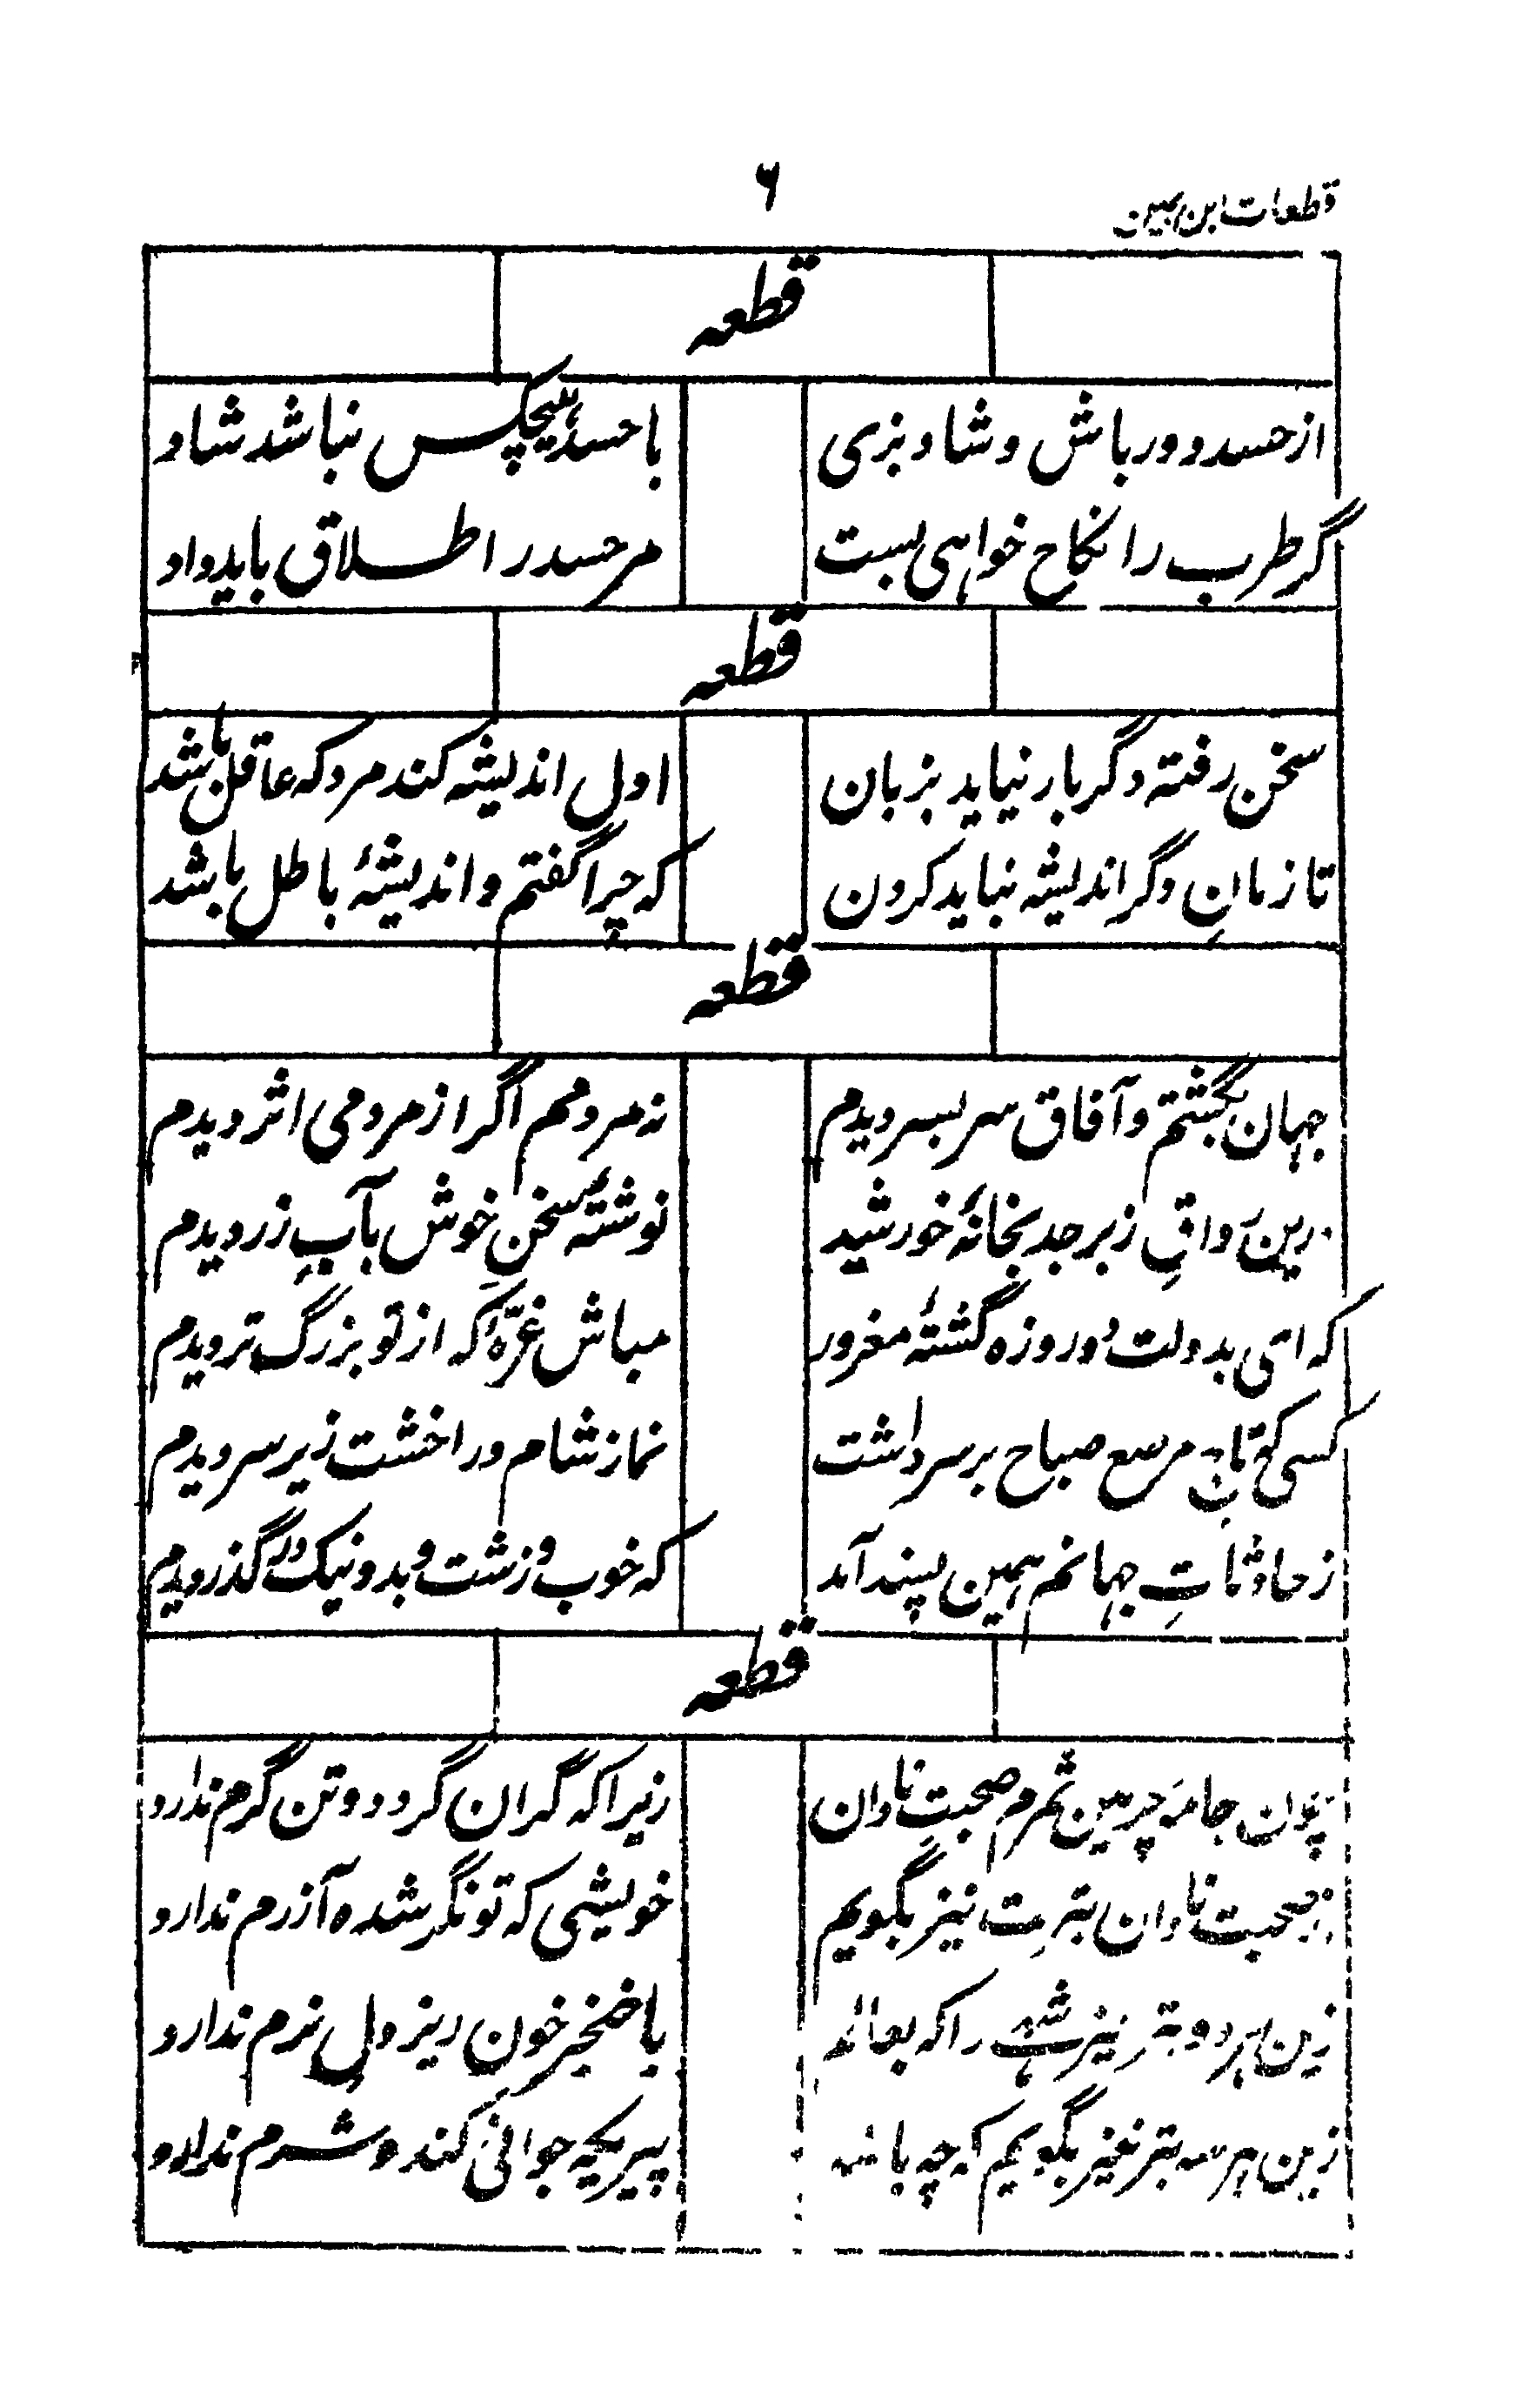 ۶
قطعات ابن یمین
قطعه
از حسد دور باش و شاد بزی با حسد هیچکس نباشد شاد
گر طرب را نکاح خواهی بست مر حسد را طلاق باید داد
قطعه
سخن رفته دگر بار نیاید بزبان اول اندیشه کند مرد که عاقل باشد
تا زمانِ دگر اندیشه نباید کردن که چرا گفتم و اندیشهٔ باطل باشد
قطعه
جهان بگشتم و آفاق سربسر دیدم نه مردمم اگر از مردمی اثر دیدم
درین رواقِ زبرجد بخانهٔ خورشید نوشتهٔ سخنِ خوش بآبِ زر دیدم
که ای بدولت دو روزه گشتهٔ مغرور مباش غرّه که از تو بزرگ تر دیدم
کسی که تاجِ مرصع صباح بر سر داشت نماز شام ورا خشت زیر سر دیدم
ز حادثاتِ جهانم همین پسند آمد که خوب و زشت و بد و نیک در گذر دیدم
قطعه
چون جامهٔ چرمین شمرم صحبتِ نادان زیرا که گران گردد و تن گرم ندارد
از صحبت نادان بترت نیز بگویم خویشی که تونگر شده آزرم ندارد
زین هر دو بتر نیز شهی را که بعالم با خنجر خون ریز دل نرم ندارد
زین هر سه بتر نیز بگویم که چه باشد پیریکه جوانی کند و شرم ندارد